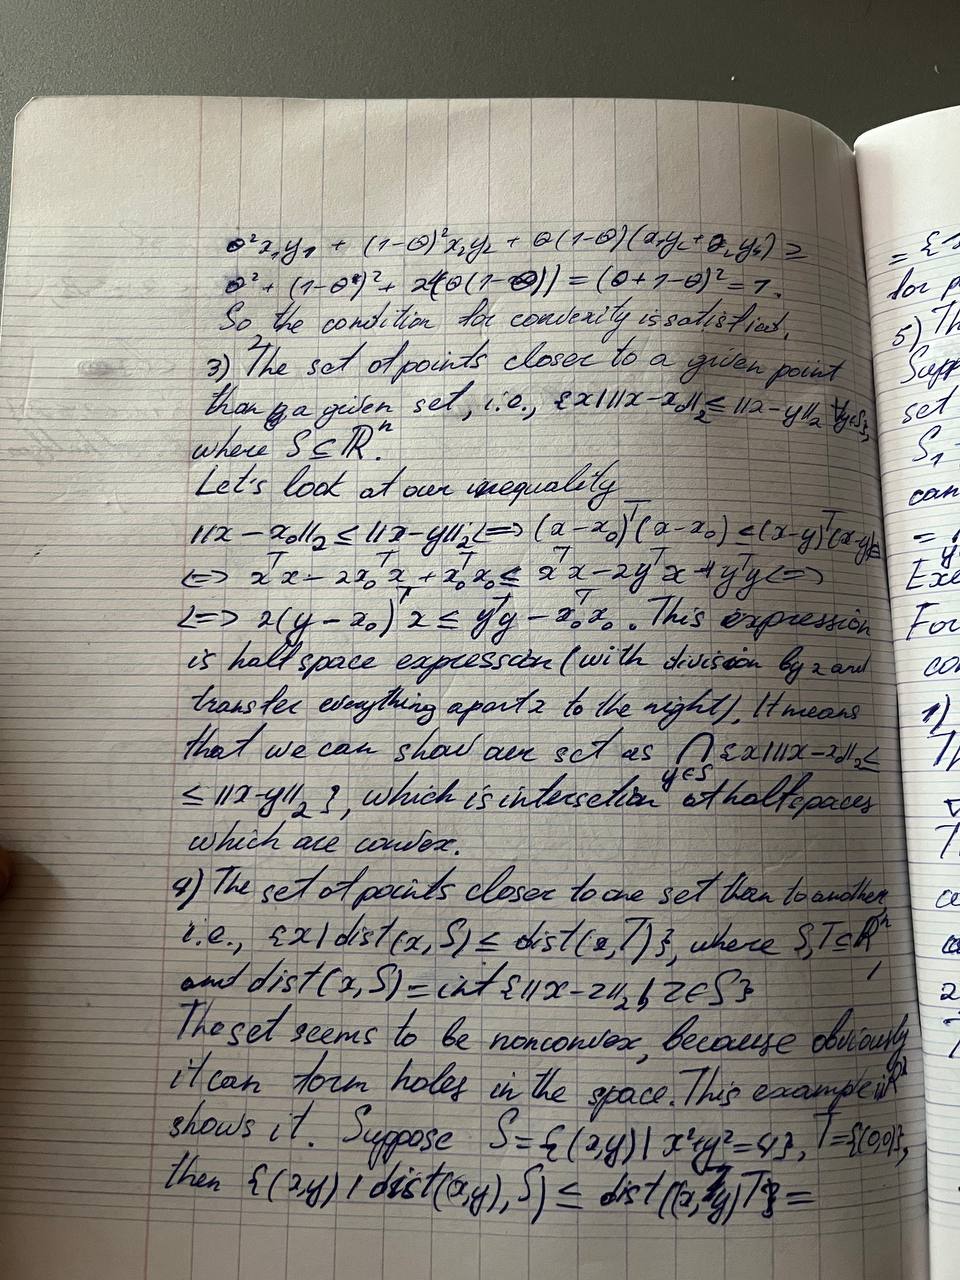 θ²x₁y₁ + (1-θ)²x₂y₂ + θ(1-θ)(x₁y₂ + x₂y₁) ≥
θ² + (1-θ)² + 2(θ(1-θ)) = (θ+1-θ)² = 1.
So, the condition for convexity is satisfied.
3) The set of points closer to a given point
than a given set, i.e., {x | ||x-x₀||₂ ≤ ||x-y||₂ ∀y∈S},
where S ⊆ ℝⁿ.
Let's look at our inequality
||x-x₀||₂ ≤ ||x-y||₂ <=> (x-x₀)ᵀ(x-x₀) ≤ (x-y)ᵀ(x-y) <=>
<=> xᵀx - 2x₀ᵀx + x₀ᵀx₀ ≤ xᵀx - 2yᵀx + yᵀy <=>
<=> 2(y-x₀)ᵀx ≤ yᵀy - x₀ᵀx₀. This expression
is halfspace expression (with division by 2 and
transfer everything apart x to the right). It means
that we can show our set as ⋂ {x | ||x-x₀||₂ ≤
y∈S
≤ ||x-y||₂}, which is intersetion of halfspaces
which are convex.
4) The set of points closer to one set than to another
i.e., {x | dist(x,S) ≤ dist(x,T)}, where S,T ⊆ ℝⁿ,
and dist(x,S) = inf{||x-z||₂ | z∈S}
The set seems to be nonconvex, because obviously
it can form holes in the space. This example in ℝ²
shows it. Suppose S = {(x,y) | x²+y²=4}, T={(0,0)},
then {(x,y) | dist((x,y),S) ≤ dist((x,y) T)} =
= {
for p
5) Th
Supp
set
S₁
can
=
y
Exe
For
co
1)
Th
T
ce
2
T